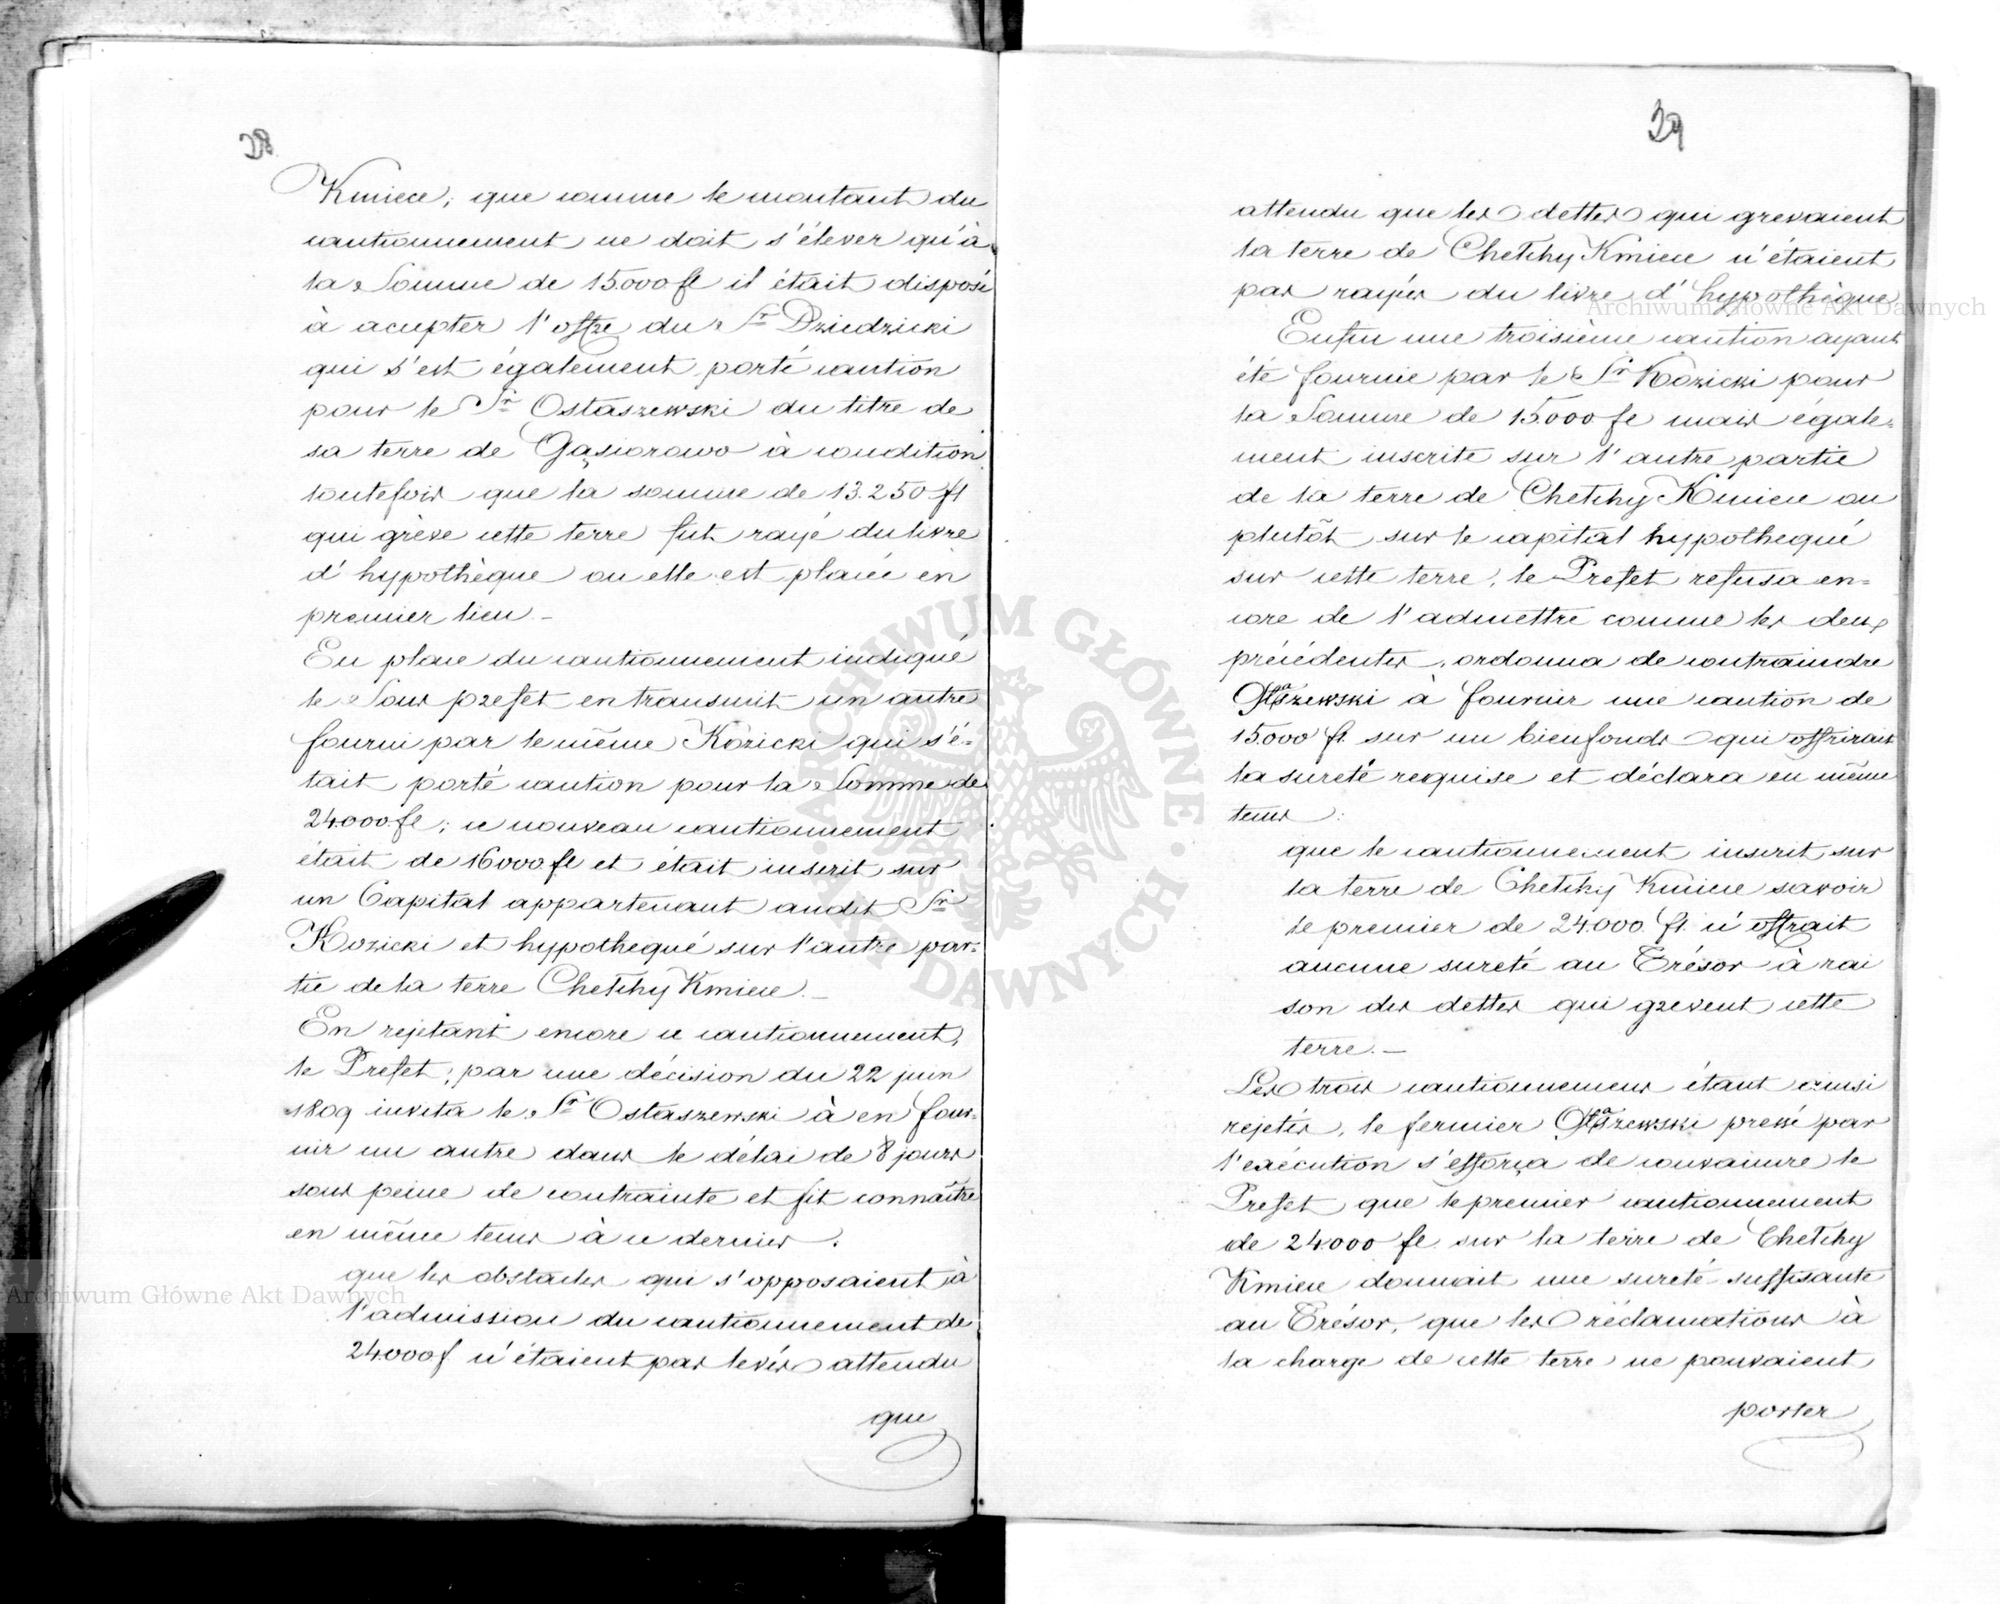 38
Kmiece; que comme le montant du
cautionnement ne doit s'élever qu'à
la Somme de 15.000 fl il était disposé
à accepter l'offre du Sr Dziedzicki
qui s'est également porté caution
pour le Sr Ostaszewski du titre de
sa terre de Gąsiorowo à condition
toutefois que la somme de 13.250 fl
qui grève cette terre fut rayé du livre
d'hypothèque ou elle est placée en
premier lieu.—
En place du cautionnement indiqué
le Sous prefet en transmit un autre
fourni par le même Kozicki qui s'é-
tait porté caution pour la Somme de
24.000 fl; ce nouveau cautionnement
était de 16000 fl et était inscrit sur
un Capital appartenant audit Sr
Kozicki et hypothequé sur l'autre par-
tie de la terre Chetchy Kmiece.—
En rejetant encore ce cautionnement,
le Prefet; par une décision du 22 juin
1809 invita le Sr Ostaszewski à en four-
nir un autre dans le délai de 8 jours
sous peine de contrainte et fit connaître
en même tems à ce dernier:
que les obstacles qui s'opposaient à
l'admission du cautionnement de
24.000 f n'étaient pas levés attendu
que
39
attendu que les dettes qui grevaient
la terre de Chetchy Kmiece n'étaient
pas rayées du livre d'hypothèque
Enfin une troisième caution ayant
été fournie par le Sr Kozicki pour
la Somme de 15.000 fl mais égale-
ment inscrite sur l'autre partie
de la terre de Chetchy Kmiece ou
plutôt sur le capital hypothequé
sur cette terre, le Prefet refusa en-
core de l'admettre comme les deux
précédentes, ordonna de contraindre
Ostaszewski à fournir une caution de
15.000 fl. sur un bienfonds qui offrirait
la sureté requise et déclara en même
tems:
que le cautionnement inscrit sur
la terre de Chetchy Kmiece savoir
le premier de 24.000 fl. n'offrait
aucune sureté au Trésor à rai
son des dettes qui grevent cette
terre.—
Les trois cautionnemens étant ainsi
rejetés, le fermier Ostaszewski pressé par
l'exécution s'efforça de convaincre le
Prefet que le premier cautionnement
de 24.000 fl. sur la terre de Chetchy
Kmiece donnait une sureté suffisante
au Trésor, que les réclamations à
la charge de cette terre ne pouvaient
porter
Archiwum Główne Akt Dawnych
Archiwum Główne Akt Dawnych
ARCHIWUM GŁÓWNE AKT DAWNYCH